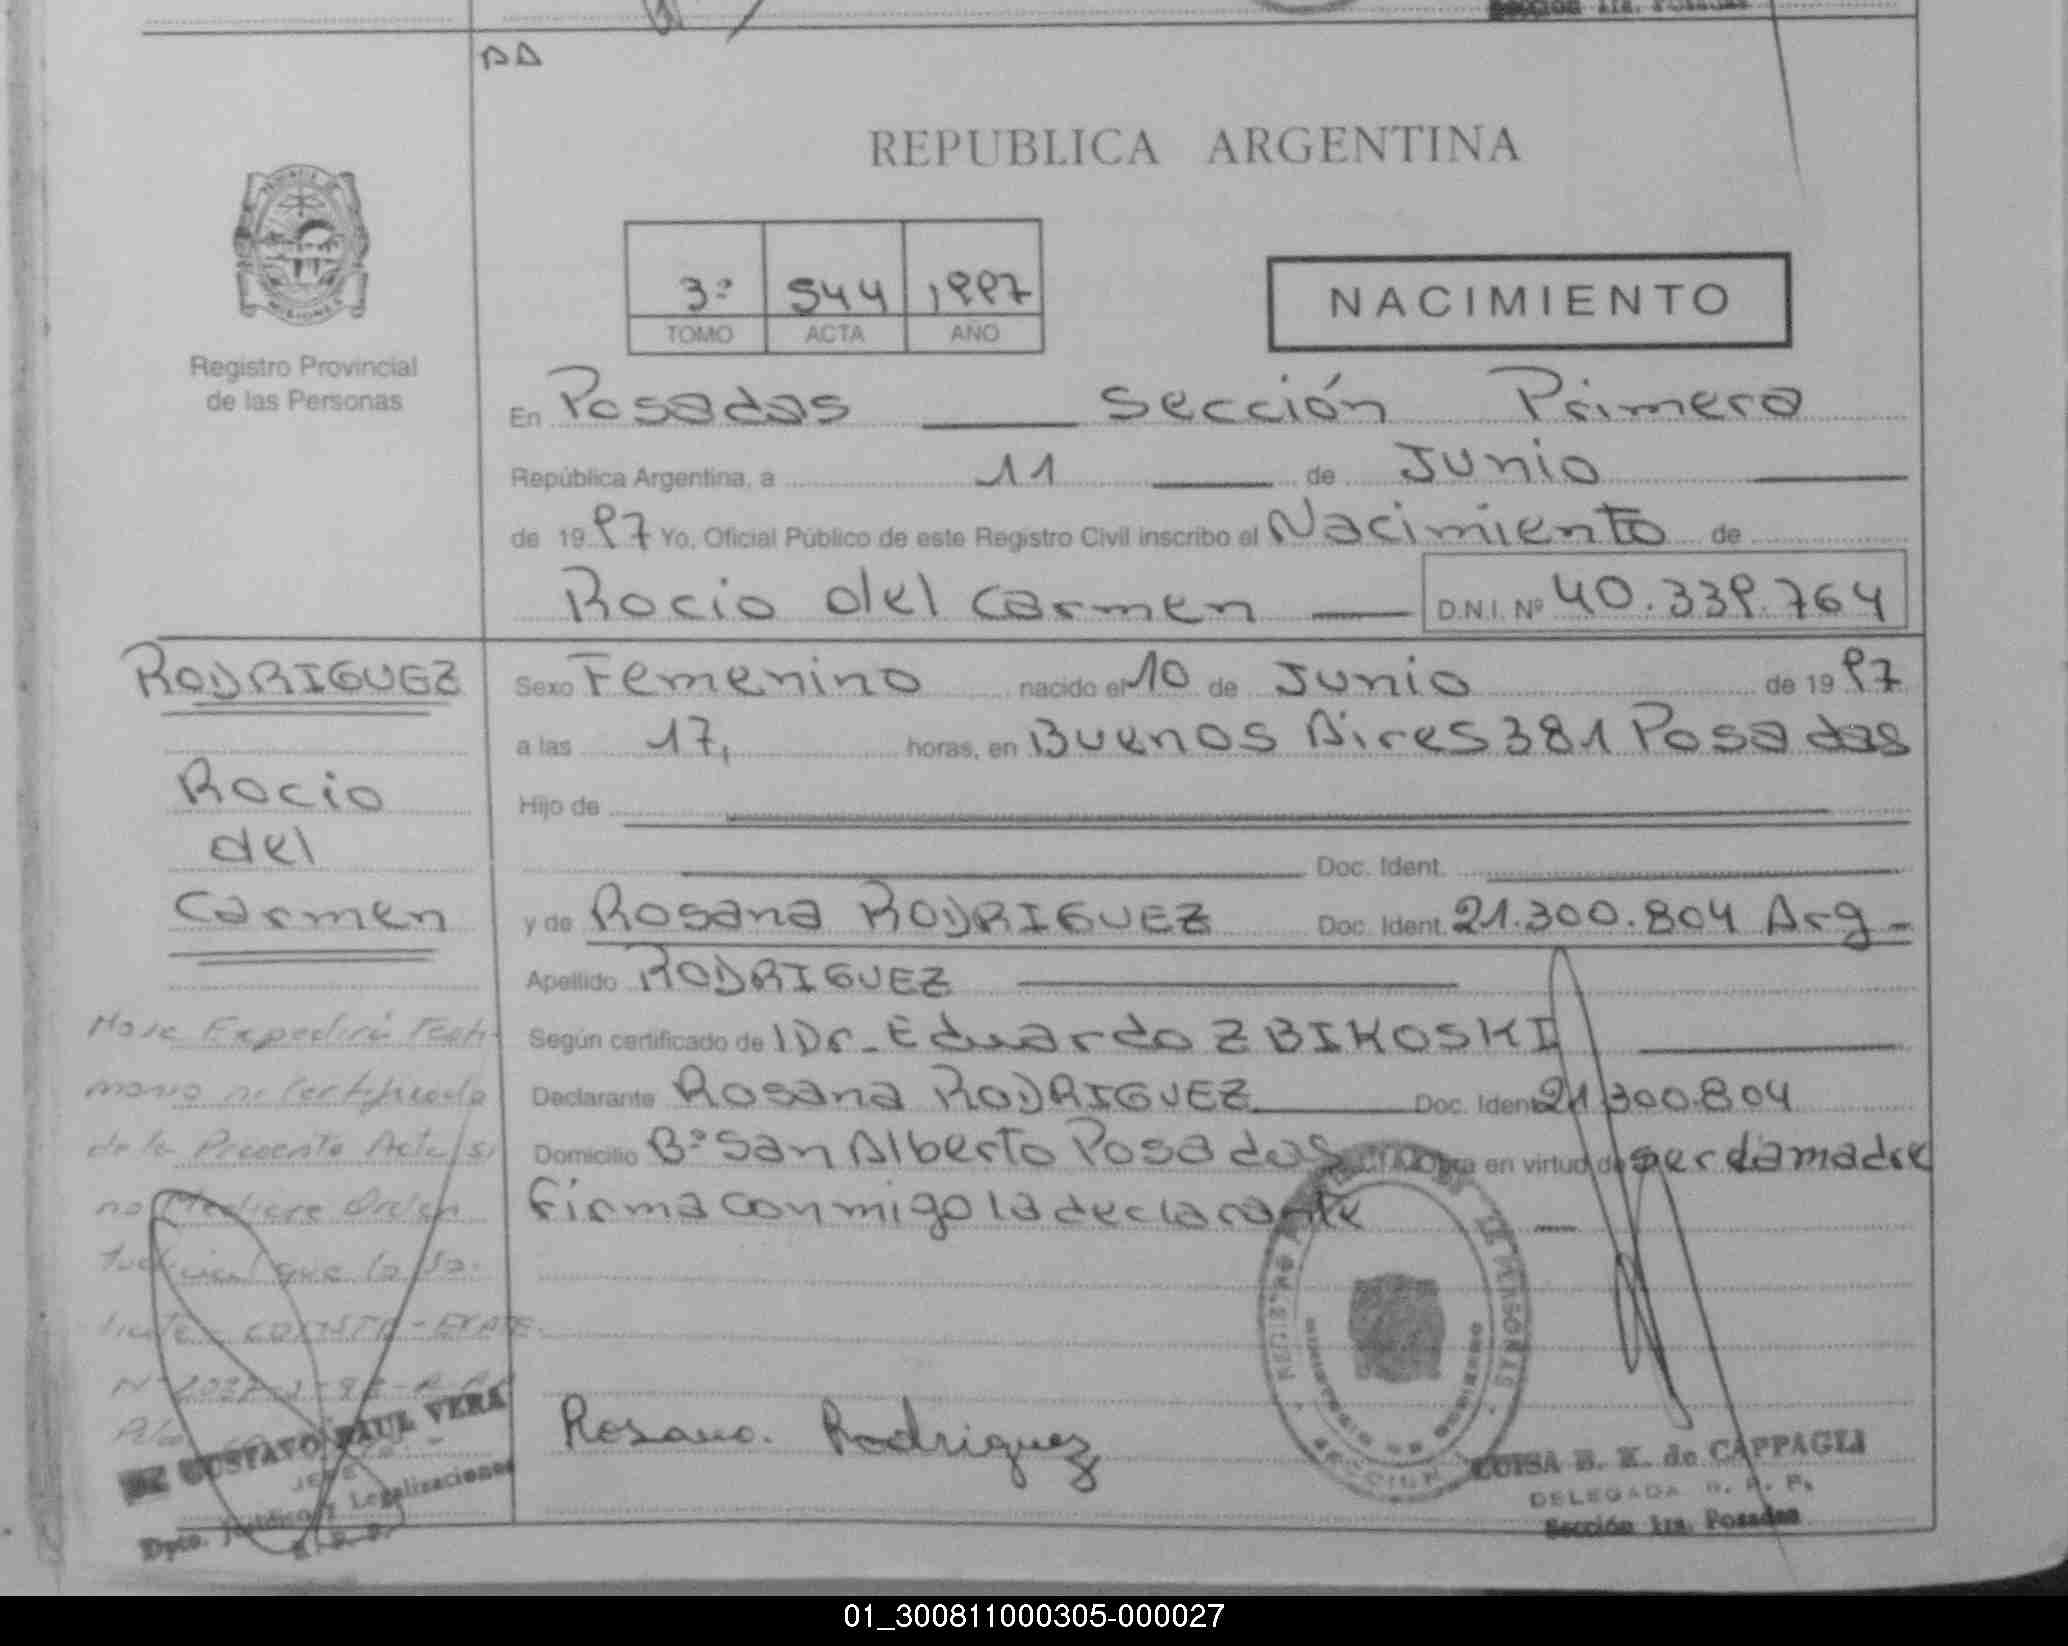 Sección 1ra. Posadas
REPUBLICA ARGENTINA
3º 544 1997
TOMO ACTA AÑO
NACIMIENTO
MISIONES
Registro Provincial
de las Personas
En Posadas sección Primera
República Argentina, a 11 de Junio
de 1997 Yo, Oficial Público de este Registro Civil inscribo el Nacimiento de
Rocio del Carmen D.N.I. Nº 40.339.764
RODRIGUEZ
Rocio
del
Carmen
Sexo Femenino nacido el 10 de Junio de 1997
a las 17, horas, en Buenos Aires 381 Posadas
Hijo de
Doc. Ident.
y de Rosana RODRIGUEZ Doc. Ident. 21.300.804 Arg-
Apellido RODRIGUEZ
Según certificado de Dr. Eduardo ZBIKOSKI
Declarante Rosana RODRIGUEZ Doc. Ident 21.300.804
Domicilio Bº San Alberto Posadas Obra en virtud de ser la madre
firma conmigo la declarante
No se Expedirá Testi-
monio ni Certificado
de la Presente Acta si
no Mediere Orden
Judicial que lo so-
licite
GUSTAVO RAUL VERA
JEFE
Dpto. Jurídico y Legalizaciones
Rosana. Rodriguez
MINISTERIO DE GOBIERNO
SECCION
LUISA B. K. de CAPPAGLI
DELEGADA R. P. P.
Sección 1ra. Posadas
01_300811000305-000027